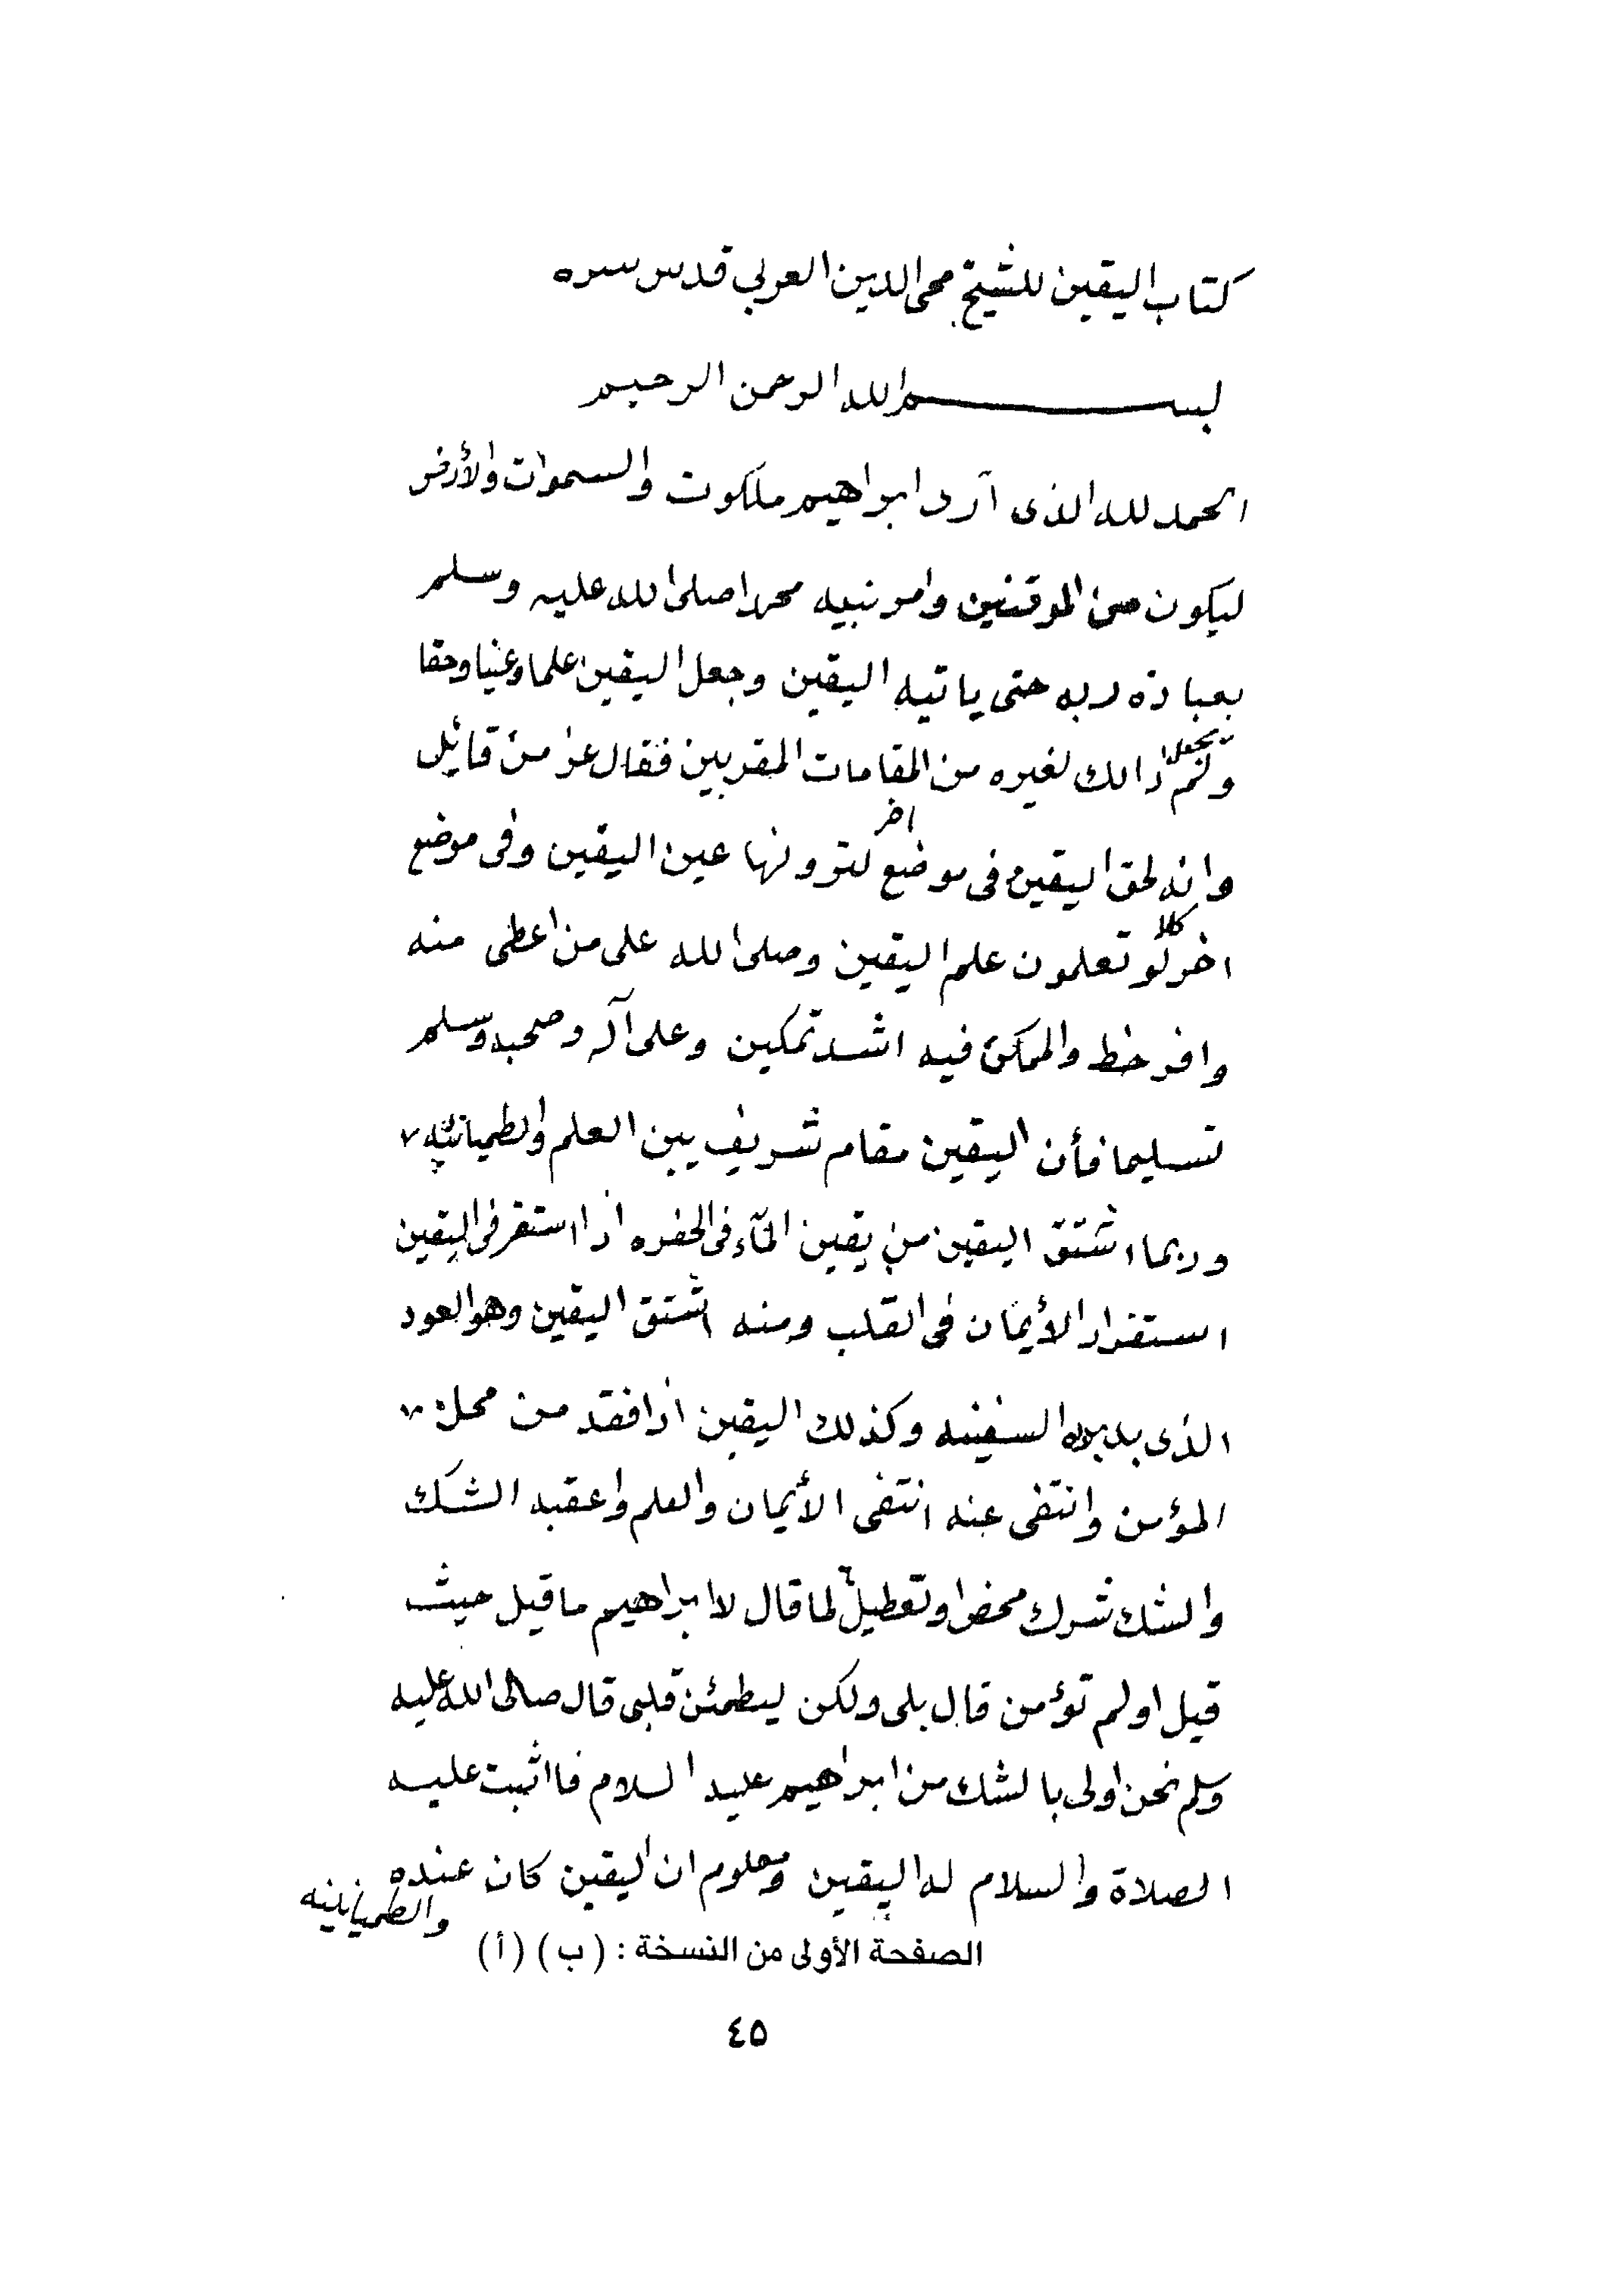 كتاب اليقين للشيخ محى الدين العربي قدس سره
بسم الله الرحمن الرحيم
الحمد لله الذى آرى ابراهيم ملكوت والسموات والأرض
ليكون من الموقنين وامر نبيه محمدا صلى الله عليه وسلم
بعبادة ربه حتى ياتيه اليقين وجعل اليقين علما وعينا وحقا
ولم يجعل ذالك لغيره من المقامات المقربين فقال عز من قائيل
وانه لحق اليقين فى موضع اخر لترونها عين اليقين وفى موضع
اخر كلا لو تعلمون علم اليقين وصلى الله على من اعطى منه
وافر حظ والممكن فيه اشد تمكين وعلى آله وصحبه وسلم
تسليما فأن اليقين مقام شريف بين العلم والطميانينه
وربما اشتق اليقين من يقين المآء فى الحفره اذا استقر فى اليقين
استقرار الأيمان فى القلب ومنه اشتق اليقين وهو العود
الذى السفينه وكذلك اليقين اذا فقد من محل
المؤمن وانتفى عنه انتفى الأيمان والعلم واعقبه الشك
والشك شرك محض او تعطيل لما قال لابراهيم ما قيل حيث
قيل اولم تؤمن قال بلى ولكن ليطمئن قلبى قال صالى الله عليه
وسلم نحن اولى بالشك من ابراهيم عليه السلام فااثبت عليه
الصلاة والسلام له اليقين ومعلوم ان اليقين كان عنده
والطميانينه
الصفحة الأولى من النسخة : (ب) (أ)
٤٥